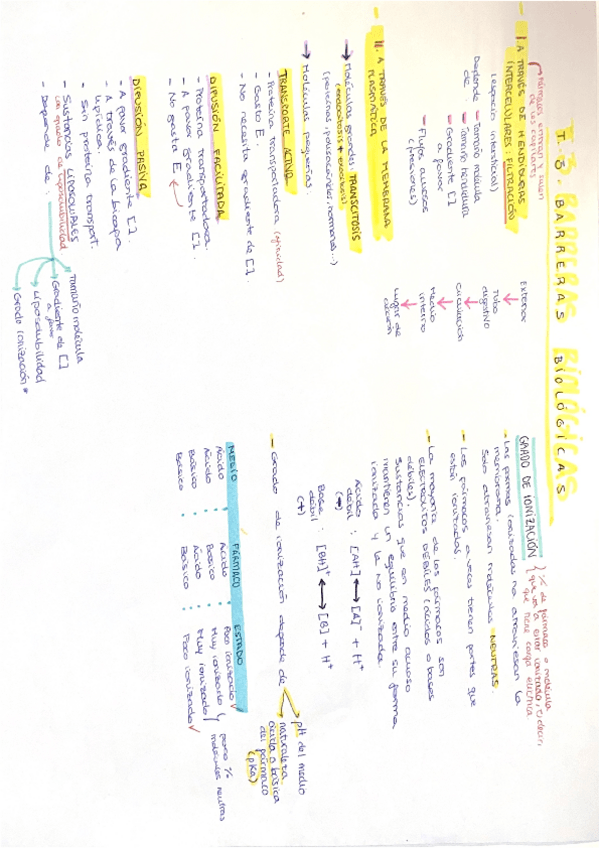 T. 3. BARRERAS BIOLÓGICAS
BARRERAS BIOLÓGICAS
Fármacos entran y salen
de los capilares
I. A TRAVÉS DE HENDIDURAS
INTERCELULARES: FILTRACIÓN
(espacio intersticial)
Depende de
- Tamaño molécula
- Tamaño hendidura
- Gradiente [ ]
a favor
- Flujos acuosos
(presiones)
Exterior
Tubo
digestivo
Circulación
Medio
interno
Lugar de
acción
II. A TRAVÉS DE LA MEMBRANA
PLASMÁTICA
→ Moléculas grandes: TRANSCITOSIS
(endocitosis + exocitosis)
(proteínas, polisacáridos, hormonas...)
→ Moléculas pequeñas:
TRANSPORTE ACTIVO
- Proteína transportadora (afinidad)
- Gasto E.
- No necesita gradiente de [ ].
DIFUSIÓN FACILITADA
- Proteína transportadora.
- A favor gradiente [ ].
- No gasta E.
DIFUSIÓN PASIVA
- A favor gradiente [ ].
- A través de la bicapa
lipídica.
- Sin proteína transport.
- Sustancias LIPOSOLUBLES
con grado de liposolubilidad
- Depende de:
Tamaño molécula
Gradiente de [ ]
a favor
Liposolubilidad
Grado ionización *
GRADO DE IONIZACIÓN
% de fármaco o molécula
que va a estar ionizado, es decir,
que tiene carga eléctrica.
- Las formas ionizadas no atraviesan la
membrana.
Solo atraviesan moléculas NEUTRAS.
- Los fármacos a veces tienen partes que
están ionizadas.
- La mayoría de los fármacos son
ELECTROLITOS DÉBILES (ácidos o bases
débiles).
Sustancias que en medio acuoso
mantienen un equilibrio entre su forma
ionizada y la no ionizada.
Ácido débil : [AH] ↔ [A]⁻ + H⁺
(-)
Base débil : [BH]⁺ ↔ [B] + H⁺
(+)
- Grado de ionización depende de
pH del medio
naturaleza
ácida o básica
del fármaco
(pKa)
MEDIO FÁRMACO ESTADO
Ácido : Ácido : Poco ionizado ✓
Ácido : Básico : Muy ionizado
Básico : Ácido : Muy ionizado
Básico : Básico : Poco ionizado ✓
poco %
moléculas neutras